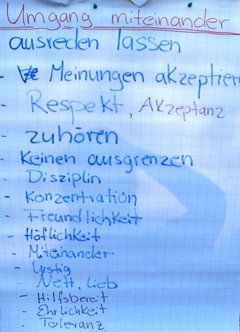 Umgang miteinander
ausreden lassen
- Meinungen akzeptier
- Respekt, Akzeptanz
- zuhören
- Keinen ausgrenzen
- Disziplin
- Konzentration
- Freundlichkeit
- Höflichkeit
- Miteinander
- Lustig
- Nett, Lieb
- Hilfsbereit
- Ehrlichkeit
- Toleranz